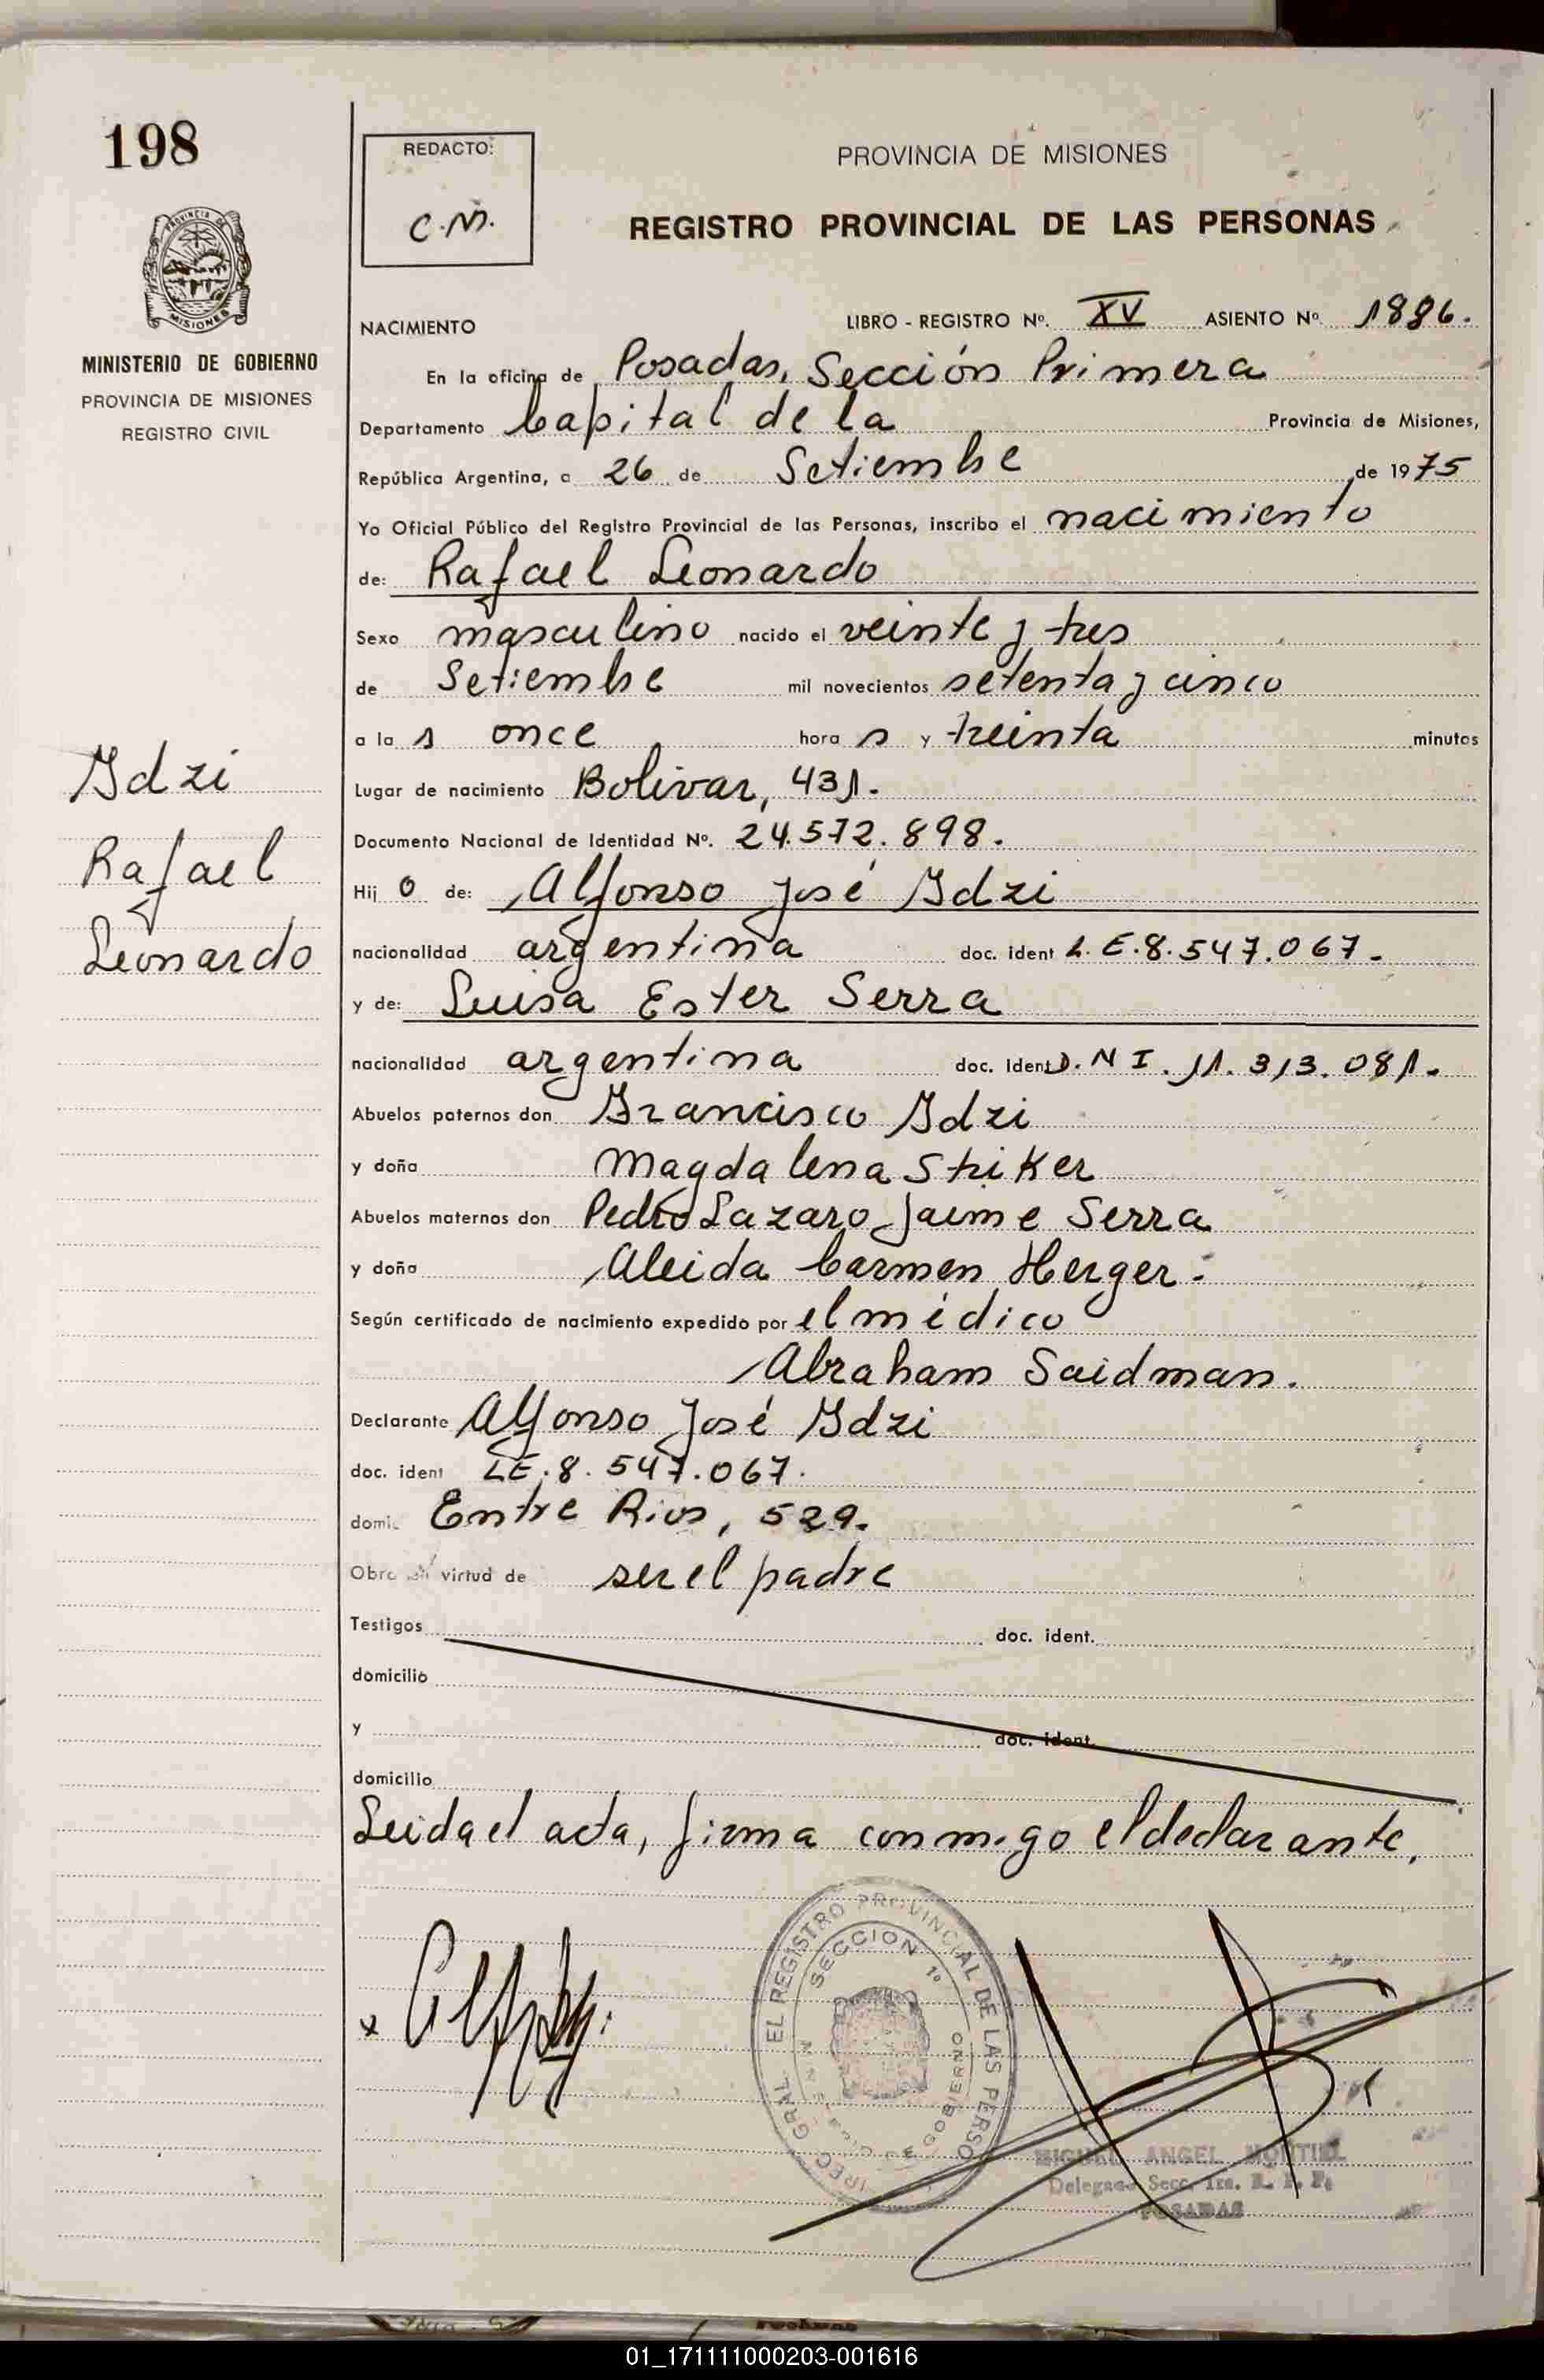 198
REDACTO:
C.M.
PROVINCIA DE MISIONES
REGISTRO PROVINCIAL DE LAS PERSONAS
PROVINCIA DE
MISIONES
MINISTERIO DE GOBIERNO
PROVINCIA DE MISIONES
REGISTRO CIVIL
NACIMIENTO LIBRO - REGISTRO Nº. XV ASIENTO Nº. 1886.
En la oficina de Posadas, Sección Primera
Departamento Capital de la Provincia de Misiones,
República Argentina, a 26 de Setiembre de 1975
Yo Oficial Público del Registro Provincial de las Personas, inscribo el nacimiento
de: Rafael Leonardo
Sexo masculino nacido el veinte y tres
de Setiembre mil novecientos setenta y cinco
a la s once hora s y treinta minutos
Idzi
Rafael
Leonardo
Lugar de nacimiento Bolivar, 431.
Documento Nacional de Identidad Nº. 24.572.898.
Hij o de: Alfonso José Idzi
nacionalidad argentina doc. ident L.E.8.547.067.-
y de: Luisa Ester Serra
nacionalidad argentina doc. Ident D.N I. 11.313.081.-
Abuelos paternos don Francisco Idzi
y doña Magdalena Striker
Abuelos maternos don Pedro Lazaro Jaime Serra
y doña Aleida Carmen Herger.-
Según certificado de nacimiento expedido por el médico
Abraham Saidman.
Declarante Alfonso José Idzi
doc. ident LE.8.547.067.
domic. Entre Rios, 529.
Obra en virtud de ser el padre
Testigos doc. ident.
domicilio
y doc. ident.
domicilio
Leida el acta, firma conmigo el declarante.
x
EL REGISTRO PROVINCIAL DE LAS PERSO
SECCION 1º
GOBIERNO
MIGUEL ANGEL MONTIEL
Delegado Secc. 1ra. R. P. P.
POSADAS
01_171111000203-001616